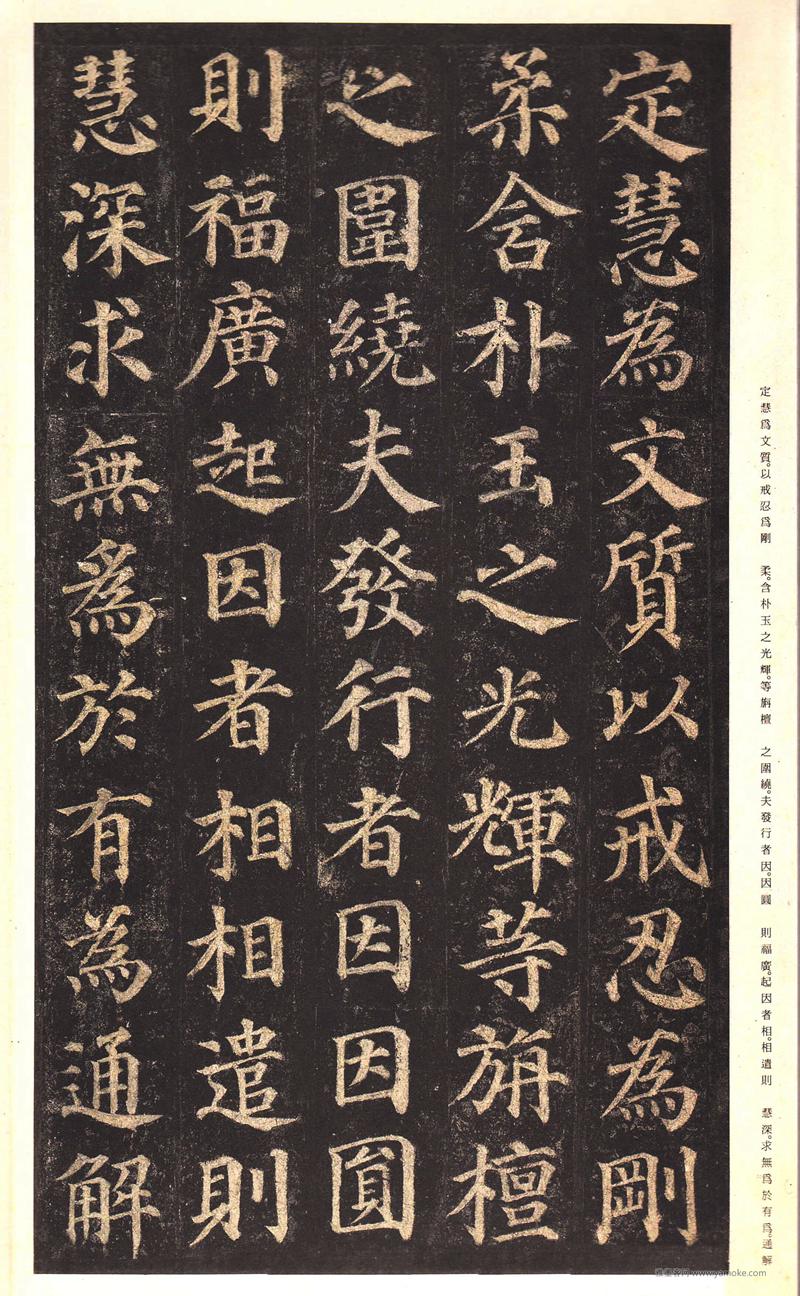 定慧為文質以戒忍為剛
柔含朴玉之光輝等旃檀
之圍繞夫發行者因因圓
則福廣起因者相相遣則
慧深求無為於有為通解
定慧爲文質。以戒忍爲剛　柔。含朴玉之光輝。等旃檀　之圍繞。夫發行者因。因圓　則福廣。起因者相。相遣則　慧深。求無爲於有爲。通解
www.yamoke.com